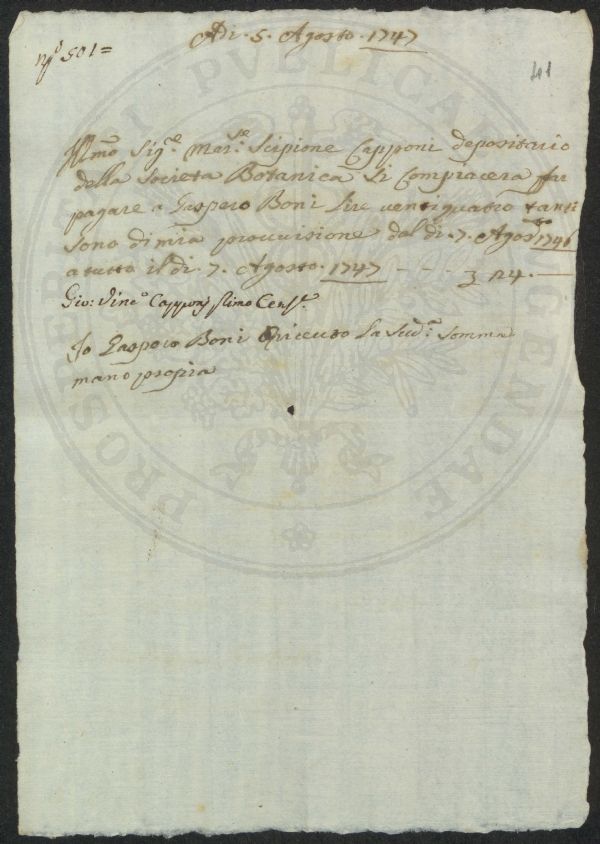 Adi. 5. Agosto. 1747
N.º 501=
411
Illmo Sig.re Mar.se Scipione Capponi depositario
della Societa Botanica Si Compiacera far
pagare a Gaspero Boni Lire ventiquatro tanti
Sono di mia provvisione dal di. 7. Agosto 1746
a tutto il di. 7. Agosto. 1747 - - - 24. —
Gio: Vinc.o Capponi
Io Gaspero Boni ò riceuto La Sud.a Somma
mano propria
PROSPERITATI PVBLICAE AVGENDAE